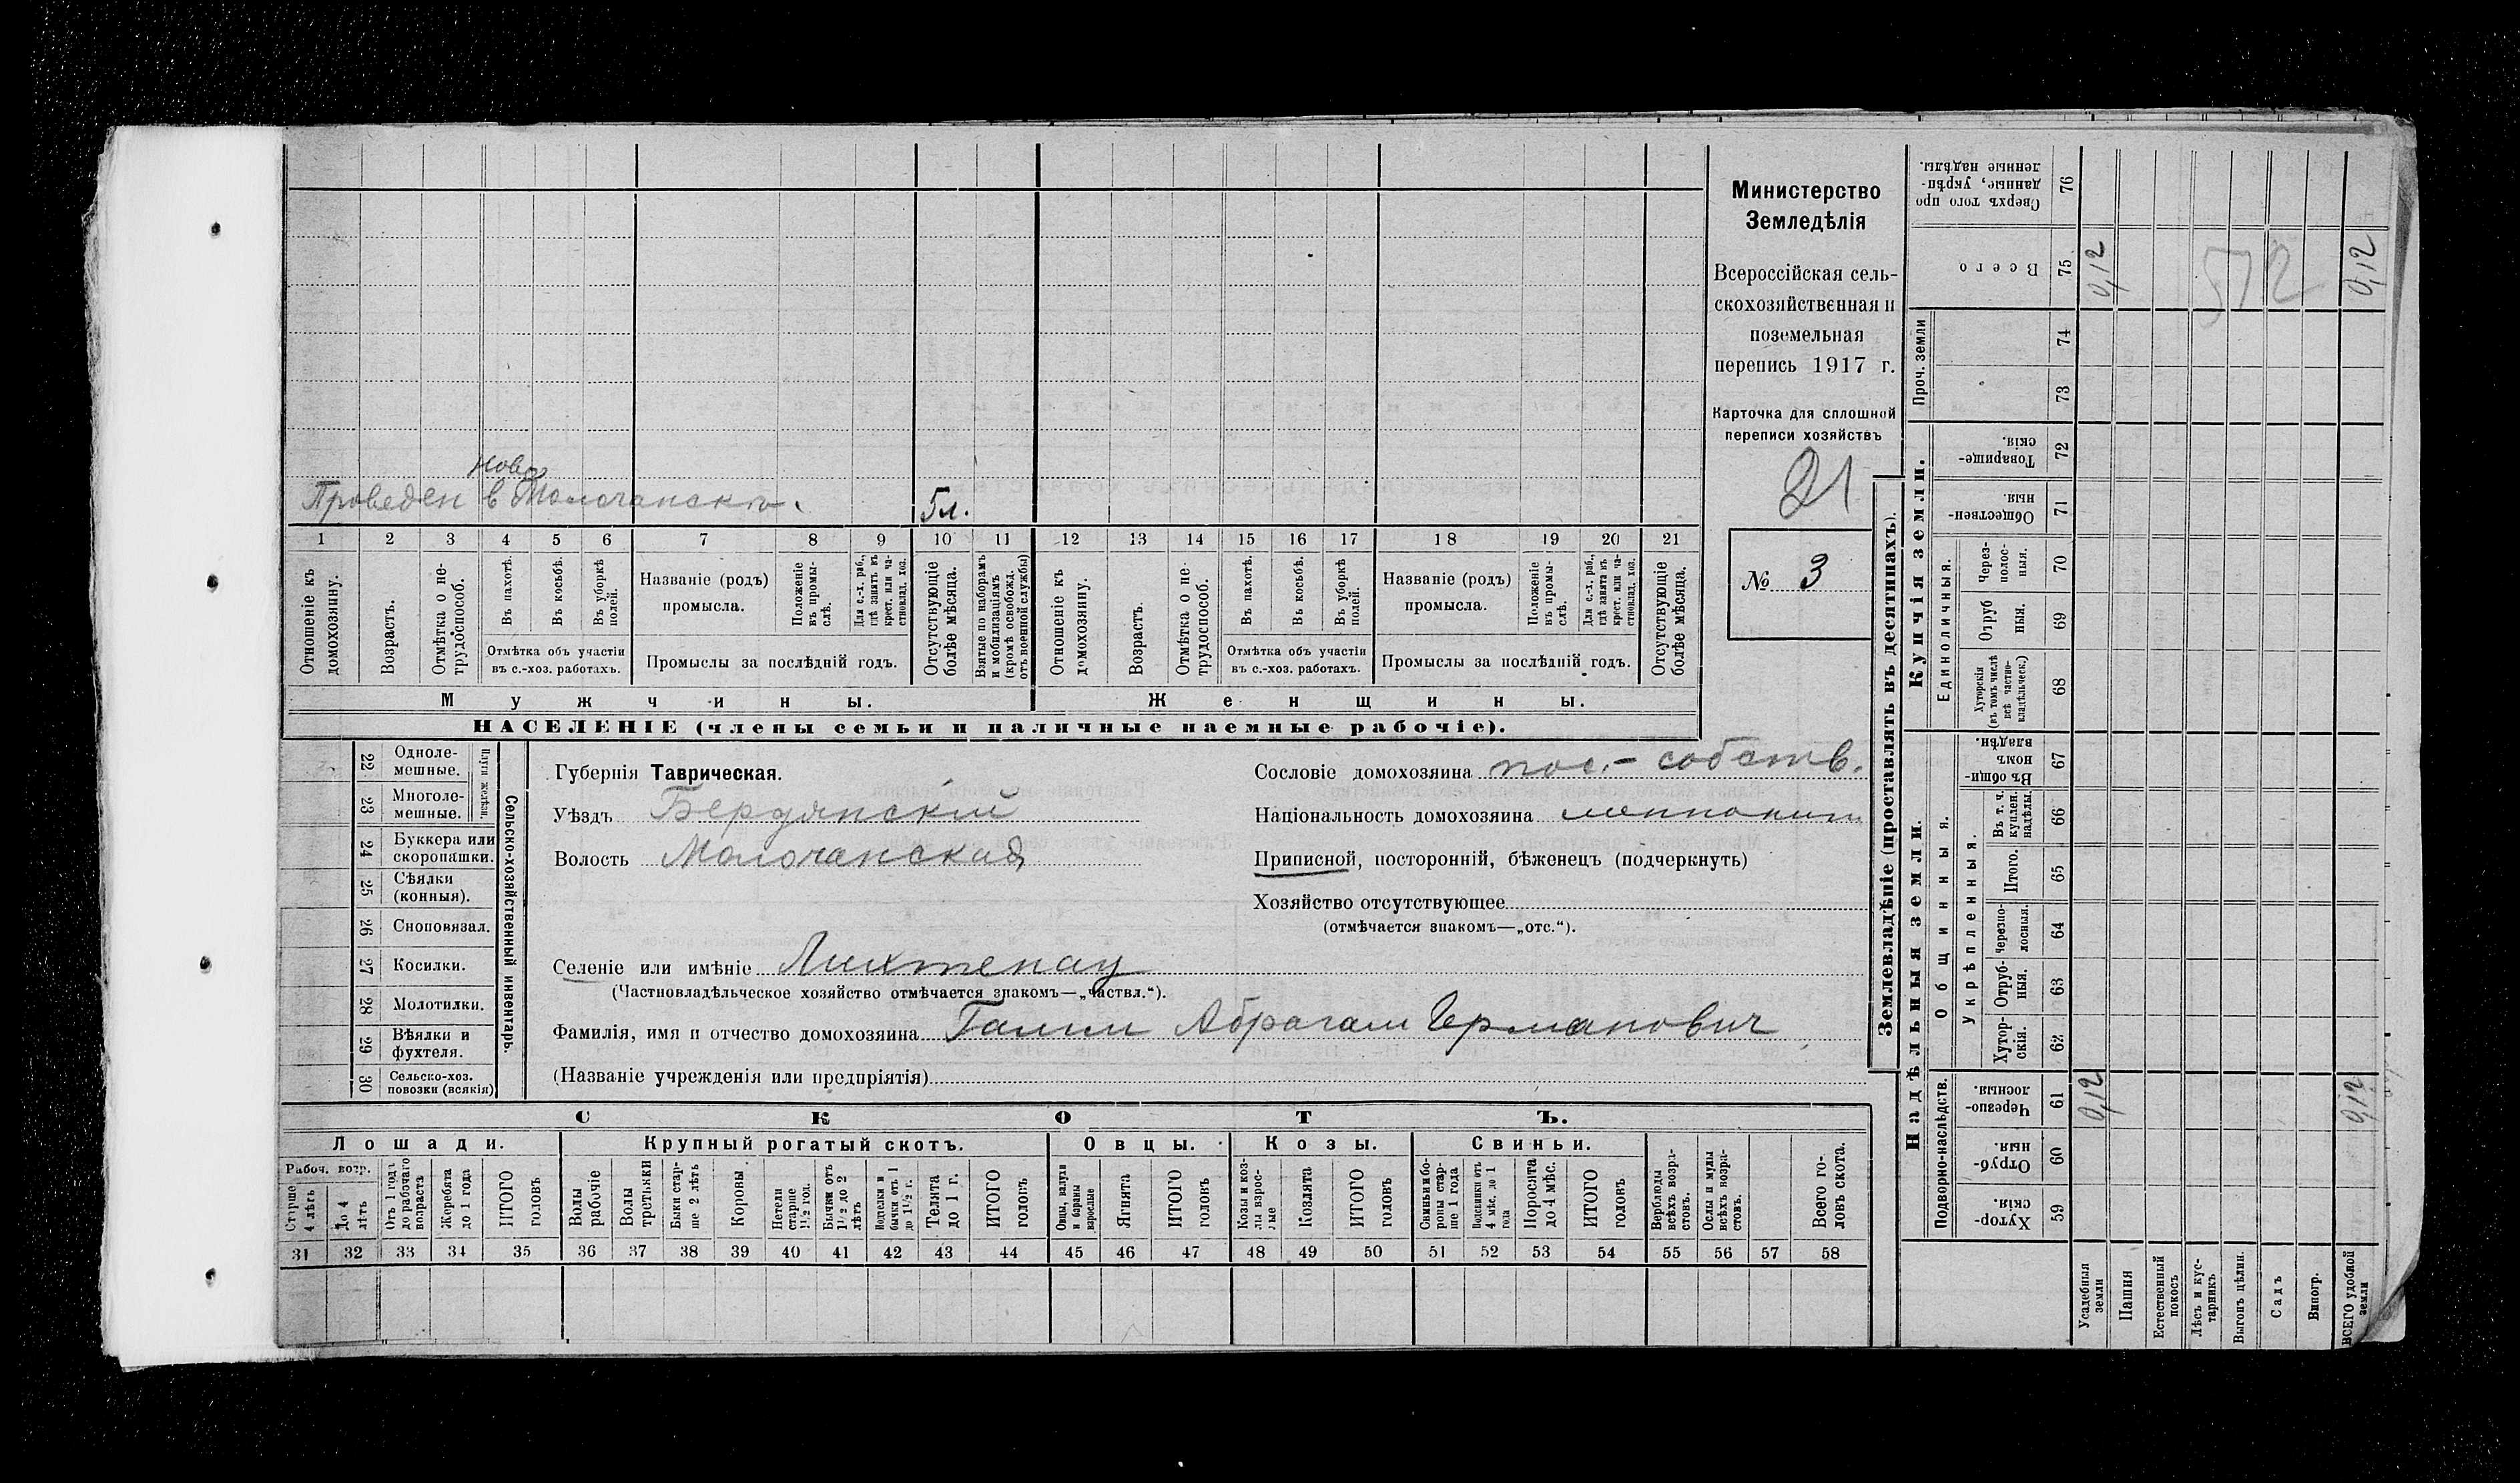 Ново
Проведен в Молочанскъ. 5 л.
1 2 3 4 5 6 7 8 9 10 11 12 13 14 15 16 17 18 19 20 21
Отношеніе къ домохозяину.
Возрастъ.
Отмѣтка о нетрудоспособ.
Въ пахотѣ.
Въ косьбѣ.
Въ уборкѣ полей.
Отмѣтка объ участіи
въ с.-хоз. работахъ.
Названіе (родъ)
промысла.
Положеніе въ промыслѣ.
Для с.-х. раб., гдѣ занятъ въ крест. или частновлад. хоз.
Промыслы за послѣдній годъ.
Отсутствующіе болѣе мѣсяца.
Взятые по наборамъ и мобилизаціямъ (кромѣ освобожд. отъ военной службы)
Отношеніе къ домохозяину.
Возрастъ.
Отмѣтка о нетрудоспособ.
Въ пахотѣ.
Въ косьбѣ.
Въ уборкѣ полей.
Отмѣтка объ участіи
въ с.-хоз. работахъ.
Названіе (родъ)
промысла.
Положеніе въ промыслѣ.
Для с.-х. раб., гдѣ занята въ крест. или частновлад. хоз.
Промыслы за послѣдній годъ.
Отсутствующіе болѣе мѣсяца.
Мужчины. Женщины.
НАСЕЛЕНІЕ (члены семьи и наличные наемные рабочіе).
Министерство
Земледѣлія
Всероссійская сель-
скохозяйственная и
поземельная
перепись 1917 г.
Карточка для сплошной
переписи хозяйствъ
21
№ 3
22 Одноле-
мешные.
23 Многоле-
мешные.
Плуги желѣзн.
24 Буккера или
скоропашки.
25 Сѣялки
(конныя).
26 Сноповязал.
27 Косилки.
28 Молотилки.
29 Вѣялки и
фухтеля.
30 Сельско-хоз.
повозки (всякія)
Сельско-хозяйственный инвентарь.
Губернія Таврическая.
Уѣздъ Бердянскій
Волость Молочанская
Сословіе домохозяина пос.- собств.
Національность домохозяина меннонит
Приписной, посторонній, бѣженецъ (подчеркнуть)
Хозяйство отсутствующее
(отмѣчается знакомъ—„отс.“).
Селеніе или имѣніе Лихтенау
(Частновладѣльческое хозяйство отмѣчается знакомъ—„частвл.“).
Фамилія, имя и отчество домохозяина Гамм Абрагам Германович
(Названіе учрежденія или предпріятія)
СКОТЪ.
Лошади. Крупный рогатый скотъ. Овцы. Козы. Свиньи.
Рабоч. возр.
Старше 4 лѣтъ
До 4 лѣтъ
Отъ 1 года до рабочаго возраста
Жеребята до 1 года
ИТОГО головъ
Волы рабочіе
Волы третьяки
Быки старше 2 лѣтъ
Коровы
Нетели старше 1 1/2 год.
Бычки отъ 1 1/2 до 2 лѣтъ
Подтелки и бычки отъ 1 до 1 1/2 г.
Телята до 1 г.
ИТОГО головъ
Овцы, валухи и бараны взрослые
Ягнята
ИТОГО головъ
Козы и козлы взрослые
Козлята
ИТОГО головъ
Свиньи и бороны старше 1 года
Подсвинки отъ 4 мѣс. до 1 года
Поросята до 4 мѣс.
ИТОГО головъ
Верблюды всѣхъ возрастовъ.
Ослы и мулы всѣхъ возрастовъ.
Всего головъ скота.
31 32 33 34 35 36 37 38 39 40 41 42 43 44 45 46 47 48 49 50 51 52 53 54 55 56 57 58
Землевладѣніе (проставлять въ десятинахъ).
Купчія земли.
Надѣльныя земли.
Сверхъ того проданные, укрѣпленные надѣлы. 76
Всего 75 0,12 512 0,12
Проч. земли 74
73
Товарищескія. 72
Общественныя. 71
Единоличныя.
Черезполосныя. 70
Отрубныя. 69
Хуторскія (въ томъ числѣ всѣ частновладѣльческ.) 68
Общинныя.
Въ общинномъ владѣн. 67
Укрѣпленныя.
Въ т. ч. куплен. надѣлы. 66
Итого. 65
Черезполосныя. 64
Отрубныя. 63
Хуторскія. 62
Подворно-наслѣдств.
Черезполосныя. 61 0,12 0,12
Отрубныя. 60
Хуторскія. 59
Усадебныя земли
Пашня
Естественный покосъ
Лѣсъ и кустарникъ
Выгонъ цѣлин.
Садъ
Виногр.
ВСЕГО удобной земли